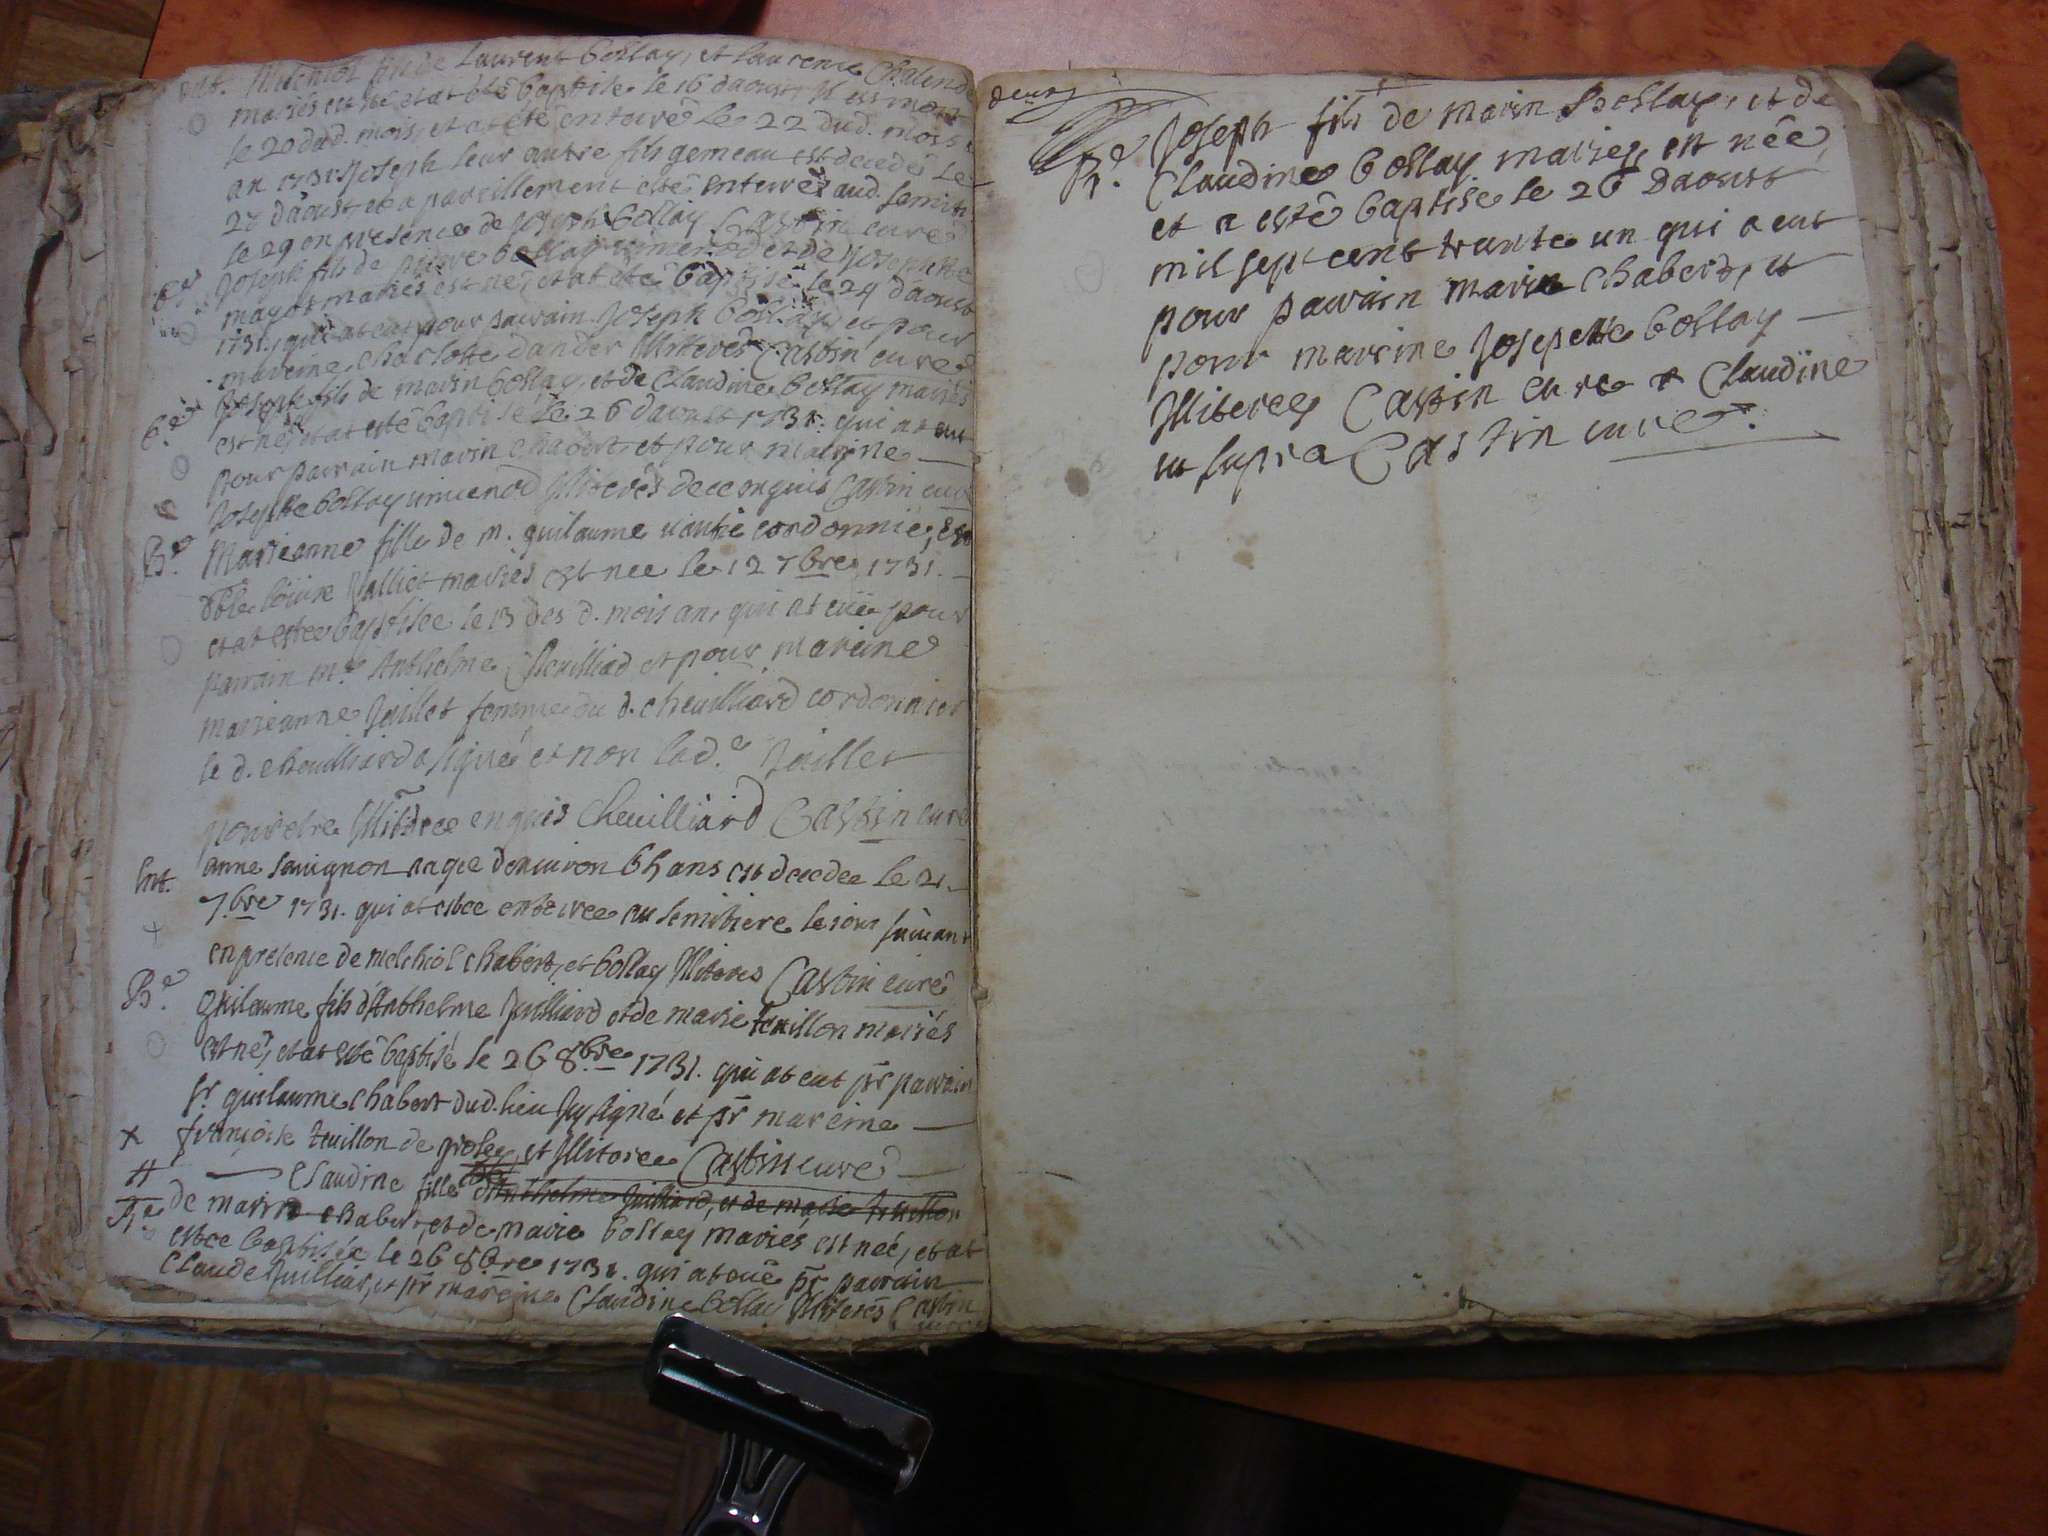 Int. Melchiol fils de Laurent bollay, et laurence Chalend
mariés est né et at été baptise le 16 daoust il est mort
le 20 dud. mois, et at été enterré le 22 dud. mois
an 1731 Joseph leur autre fils gemeau est decedé le
27 daoust, et a pareillement esté enterré aud. semiti.
le 29 en presence de Joseph bollay Castin curé
Joseph fils de pierre bollay et de Josephte
mayot mariés est né, et at été baptisé le 24 daoust
1731, qui at eut pour parrain Joseph bollay et pour
mareine charlotte dander illiterés Castin curé
B.e Joseph fils de marin bollay, et de Claudine bollay mariés
est né, et at esté baptisé le 26 daoust 1731. qui at eut
pour parrain marin chabert, et pour mareine
Josephte bollay illiterés de ce enquis Castin curé
B.e Marieanne fille de m. guilaume cordonnié, et
d.lle Louise Jalliet mariés est nee le 12 7bre 1731.
et at estée baptisée le 13 des d. mois an, qui at eüe pour
parrain m.e Anthelme Cheuilliard et pour mareine
marieanne Jaillet femme du d. cheuilliard cordonnier
le d. cheuilliard a signé et non lad.e Jaillet
pour etre illitoree enquis Cheuilliard Castin curé
Int. anne sauignon aagee denuiron ans est decedee le 21.
7.bre 1731. qui at estee enterree au semitiere le jour suiuant
en presence de melchiol chabert, et bollay illiteres Castin curé
B.e Guilaume fils d'Anthelme Juilliard et de marie truillon mariés
est né, et at esté baptisé le 26 8bre 1731. qui at eut pr parrain
sr guilaume chabert dud. lieu sysigné et pr mareine
x françoise truillon de et illitoree Castin curé
# Claudine fille d'Anthelme Juilliard, et de marie truillon
B.e de marin chabert, et de marie bollay mariés, est neé, et at
estee baptisée le 26 8bre 1731. qui at euë pr parrain
Claude Juilliar, et pr mareine Claudine bollay illiterés Castin
curé
B.e Joseph fils de marin Bollay, et de
Claudine bollay mariez, est née,
et a esté baptise le 26 Daoust
mil sept cent trante un qui a eut
pour parrain marin chabert, et
pour mareine Josepette bollay
illiterez Castin cure & Claudine
ut supra Castin curé.